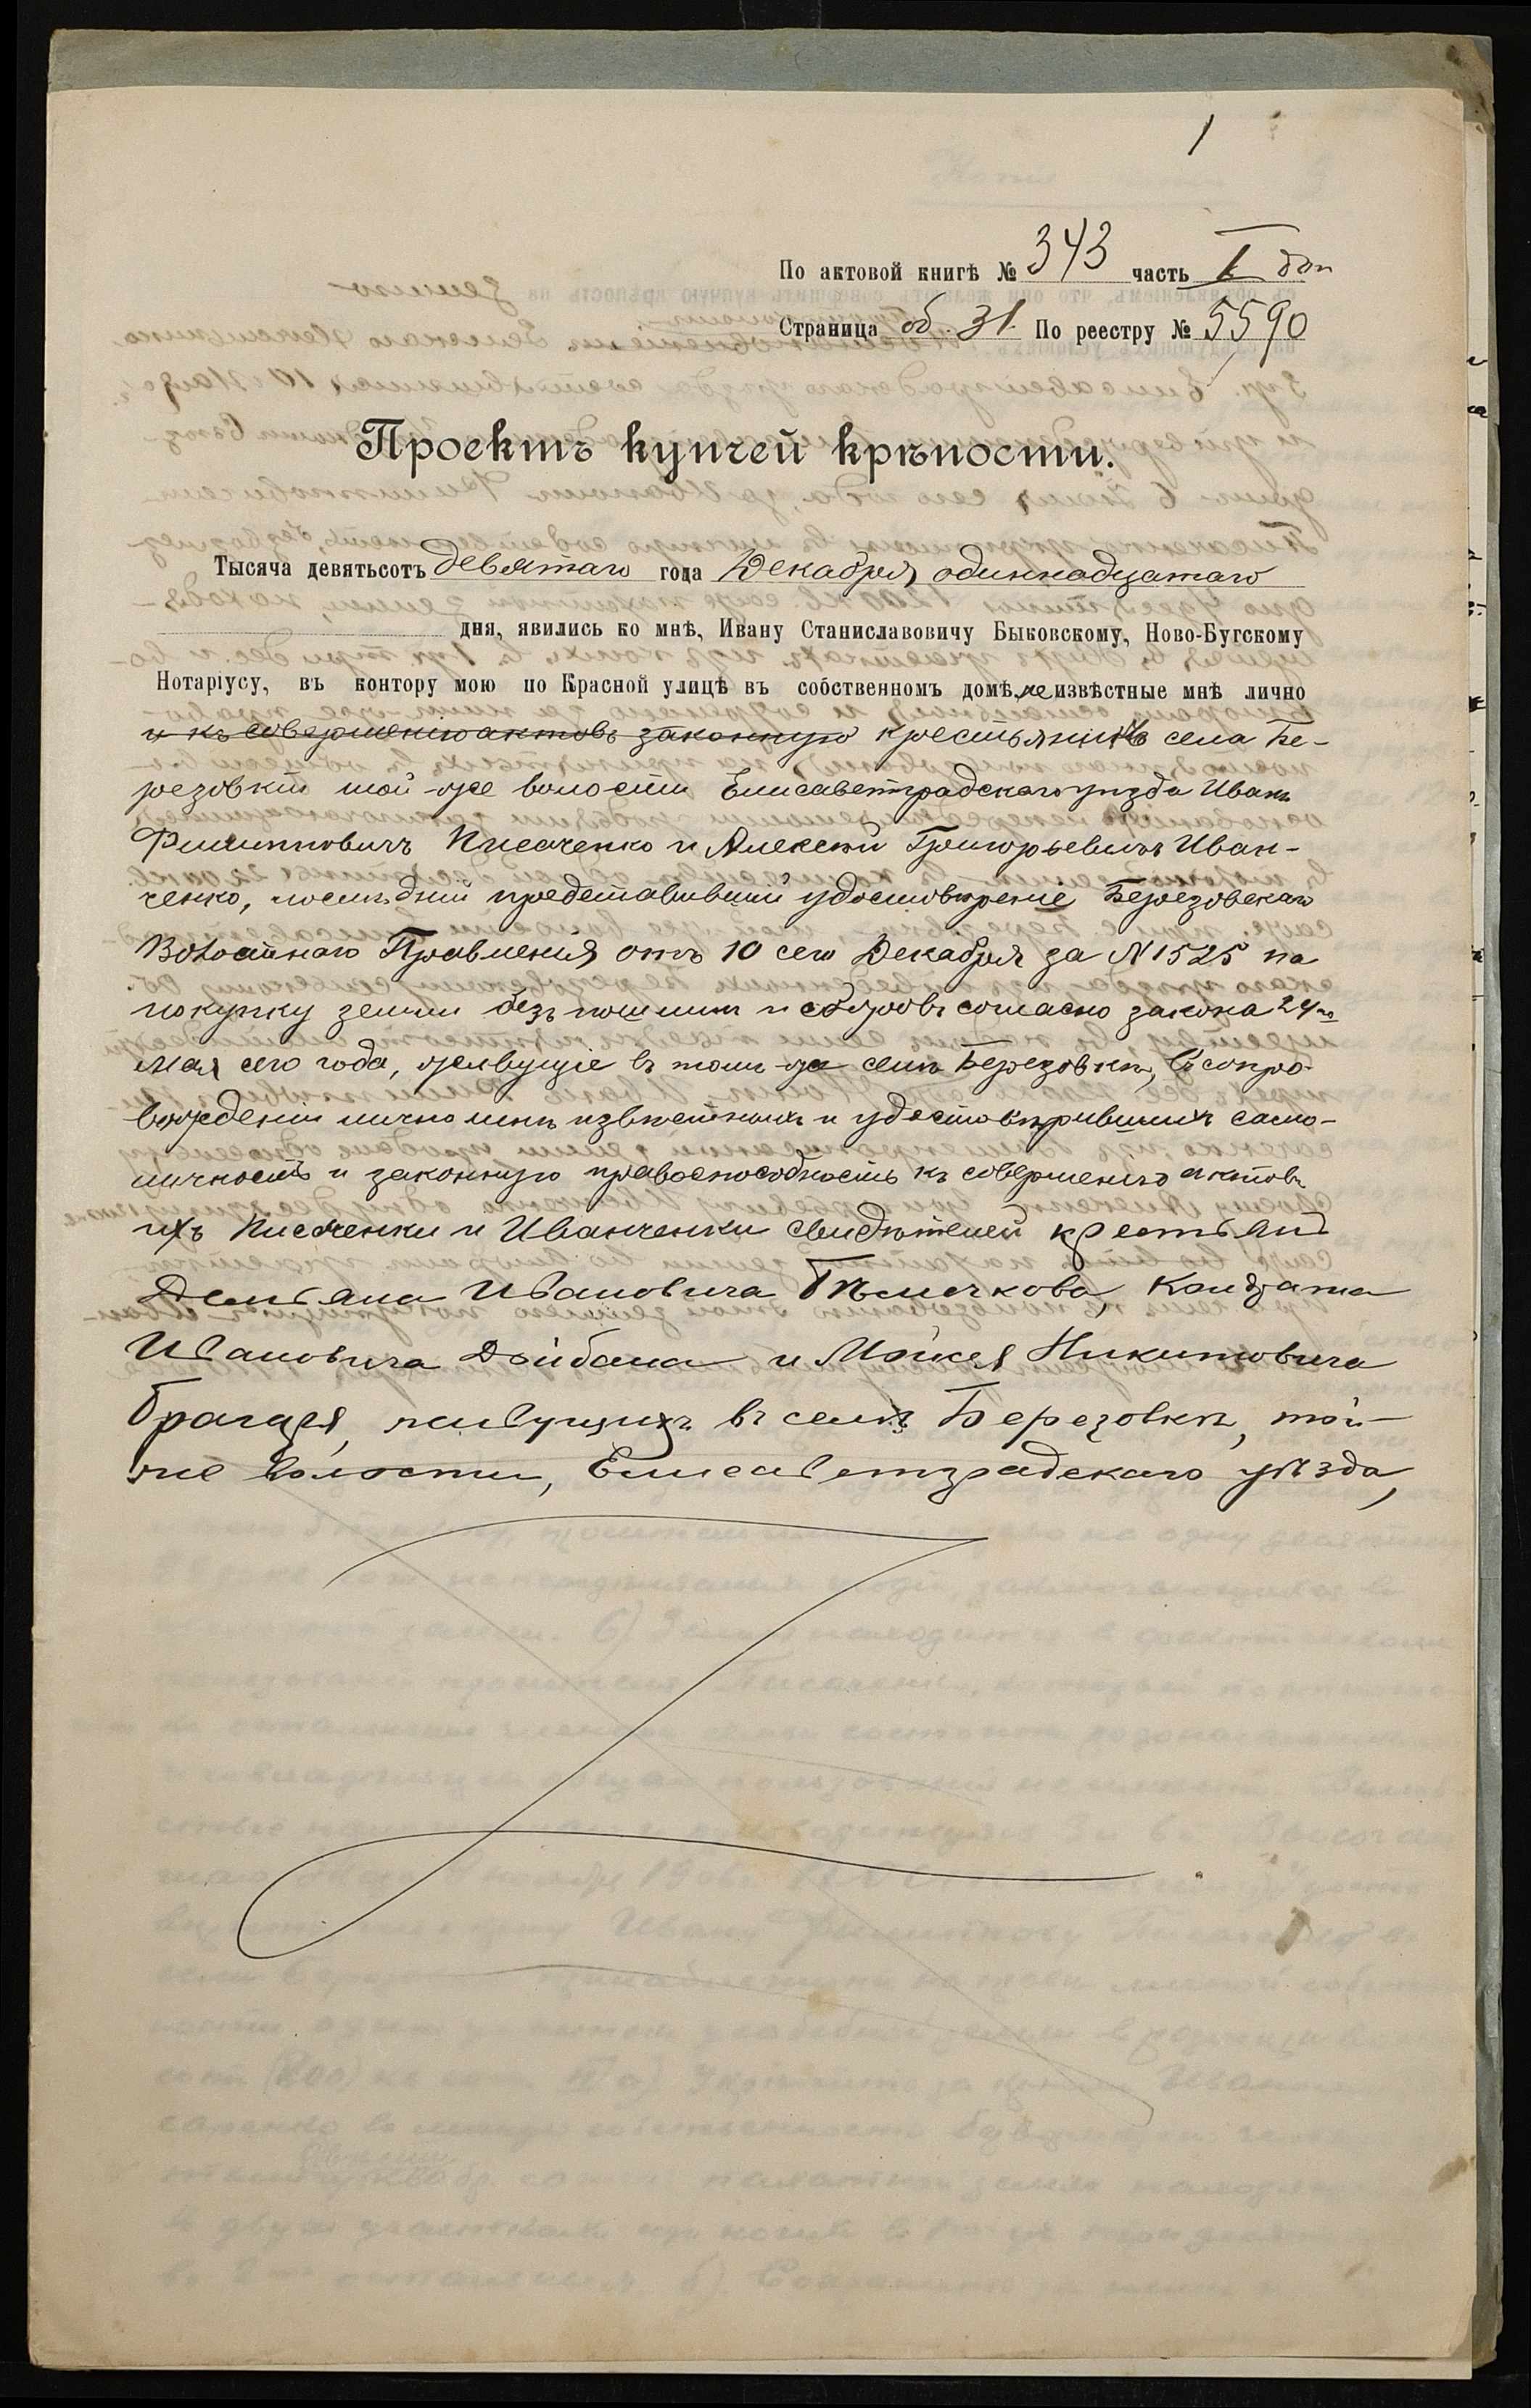 1
По актовой книгѣ № 343 часть I доп
Страница об. 31. По реестру № 5590
Проектъ купчей крѣпости.
Тысяча девятьсотъ девятаго года Декабря одиннадцатаго
дня, явились ко мнѣ, Ивану Станиславовичу Быковскому, Ново-Бугскому
Нотаріусу, въ контору мою по Красной улицѣ въ собственномъ домѣ, неизвѣстные мнѣ лично
и къ совершенію актовъ законную крестьяне села Бе-
резовки той-же волости Елисаветградскаго уѣзда Иванъ
Филипповичъ Писаченко и Алексѣй Григорьевичъ Иван-
ченко, послѣдній представившій удостовѣреніе Березовскаго
Волостнаго Правленія отъ 10 сего Декабря за N 1525 на
покупку земли безъ пошлинъ и сборовъ согласно закона 24го
Мая сего года, живущіе въ томъ-же селѣ Березовкѣ, въ сопро-
вожденіи лично мнѣ извѣстныхъ и удостовѣрившихъ само-
личность и законную правоспособность къ совершенію актовъ
ихъ Писаченки и Иванченки свидѣтелей крестьянъ
Демьяна Ивановича Бѣлычкова, Кондрата
Ивановича Дойбана и Мойсея Никитовича
Брагаря, живущихъ въ селѣ Березовкѣ, той-
же волости, Елисаветградскаго уѣзда,